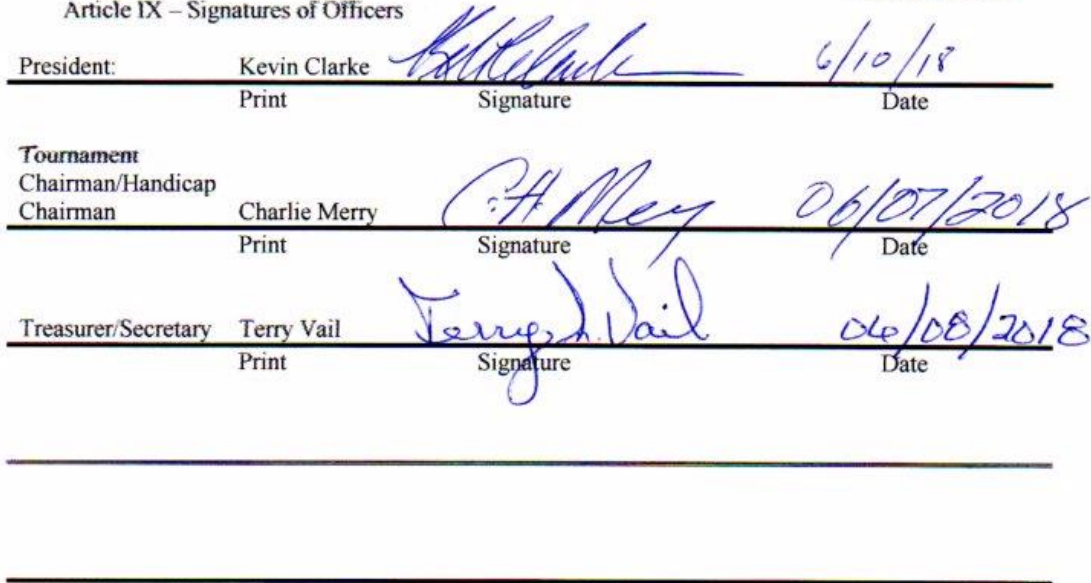 Article IX – Signatures of Officers
President: Kevin Clarke 6/10/18
Print Signature Date
Tournament
Chairman/Handicap
Chairman Charlie Merry C.H. Merry 06/07/2018
Print Signature Date
Treasurer/Secretary Terry Vail Terry L. Vail 06/08/2018
Print Signature Date